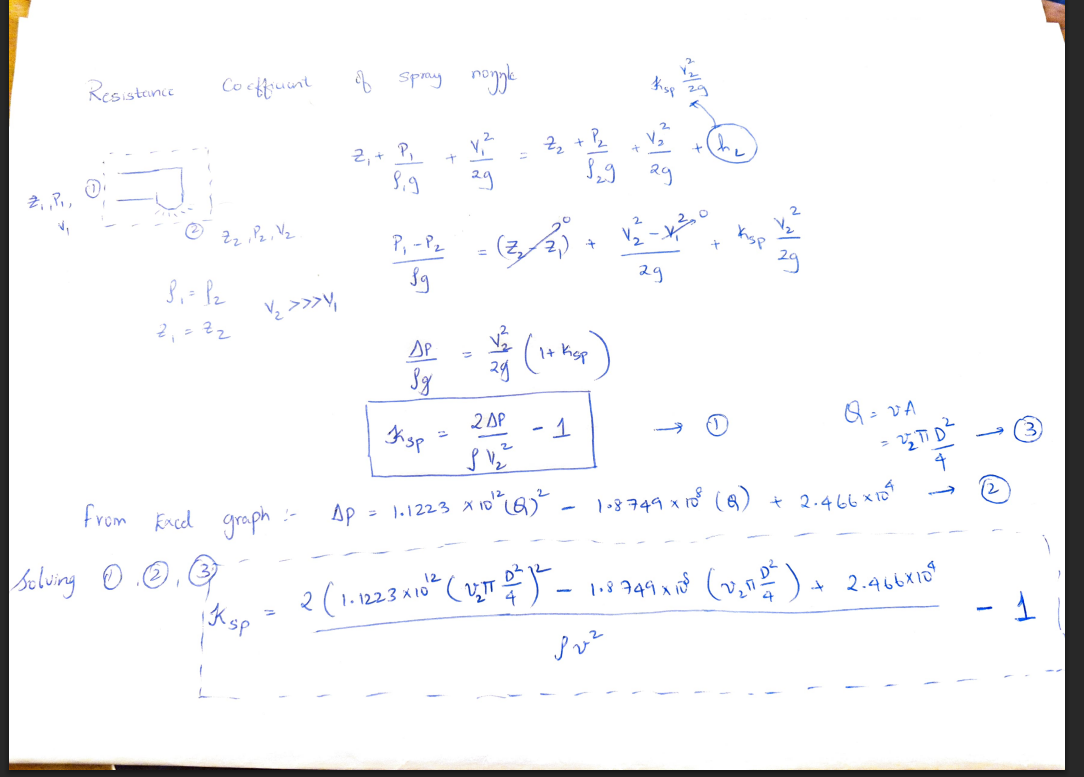 Resistance Coefficient of spray nozzle
Ksp V₂²/2g
Z₁ + P₁/ρ₁g + V₁²/2g = Z₂ + P₂/ρ₂g + V₂²/2g + h_L
Z₁, P₁, V₁ ①
② Z₂, P₂, V₂
(P₁ - P₂)/ρg = (Z₂ - Z₁)⁰ + (V₂² - V₁²⁰)/2g + Ksp V₂²/2g
ρ₁ = ρ₂
V₂ >>> V₁
Z₁ = Z₂
ΔP/ρg = V₂²/2g (1 + Ksp)
Ksp = 2ΔP/ρV₂² - 1 → ①
Q = vA
= v₂ π D²/4 → ③
from Excel graph :- Δp = 1.1223 × 10¹² (Q)² - 1.8749 × 10⁸ (Q) + 2.466 × 10⁴ → ②
Solving ①, ②, ③
Ksp = 2 (1.1223 × 10¹² (v₂ π D²/4)² - 1.8749 × 10⁸ (v₂ π D²/4) + 2.466 × 10⁴ / ρv² - 1